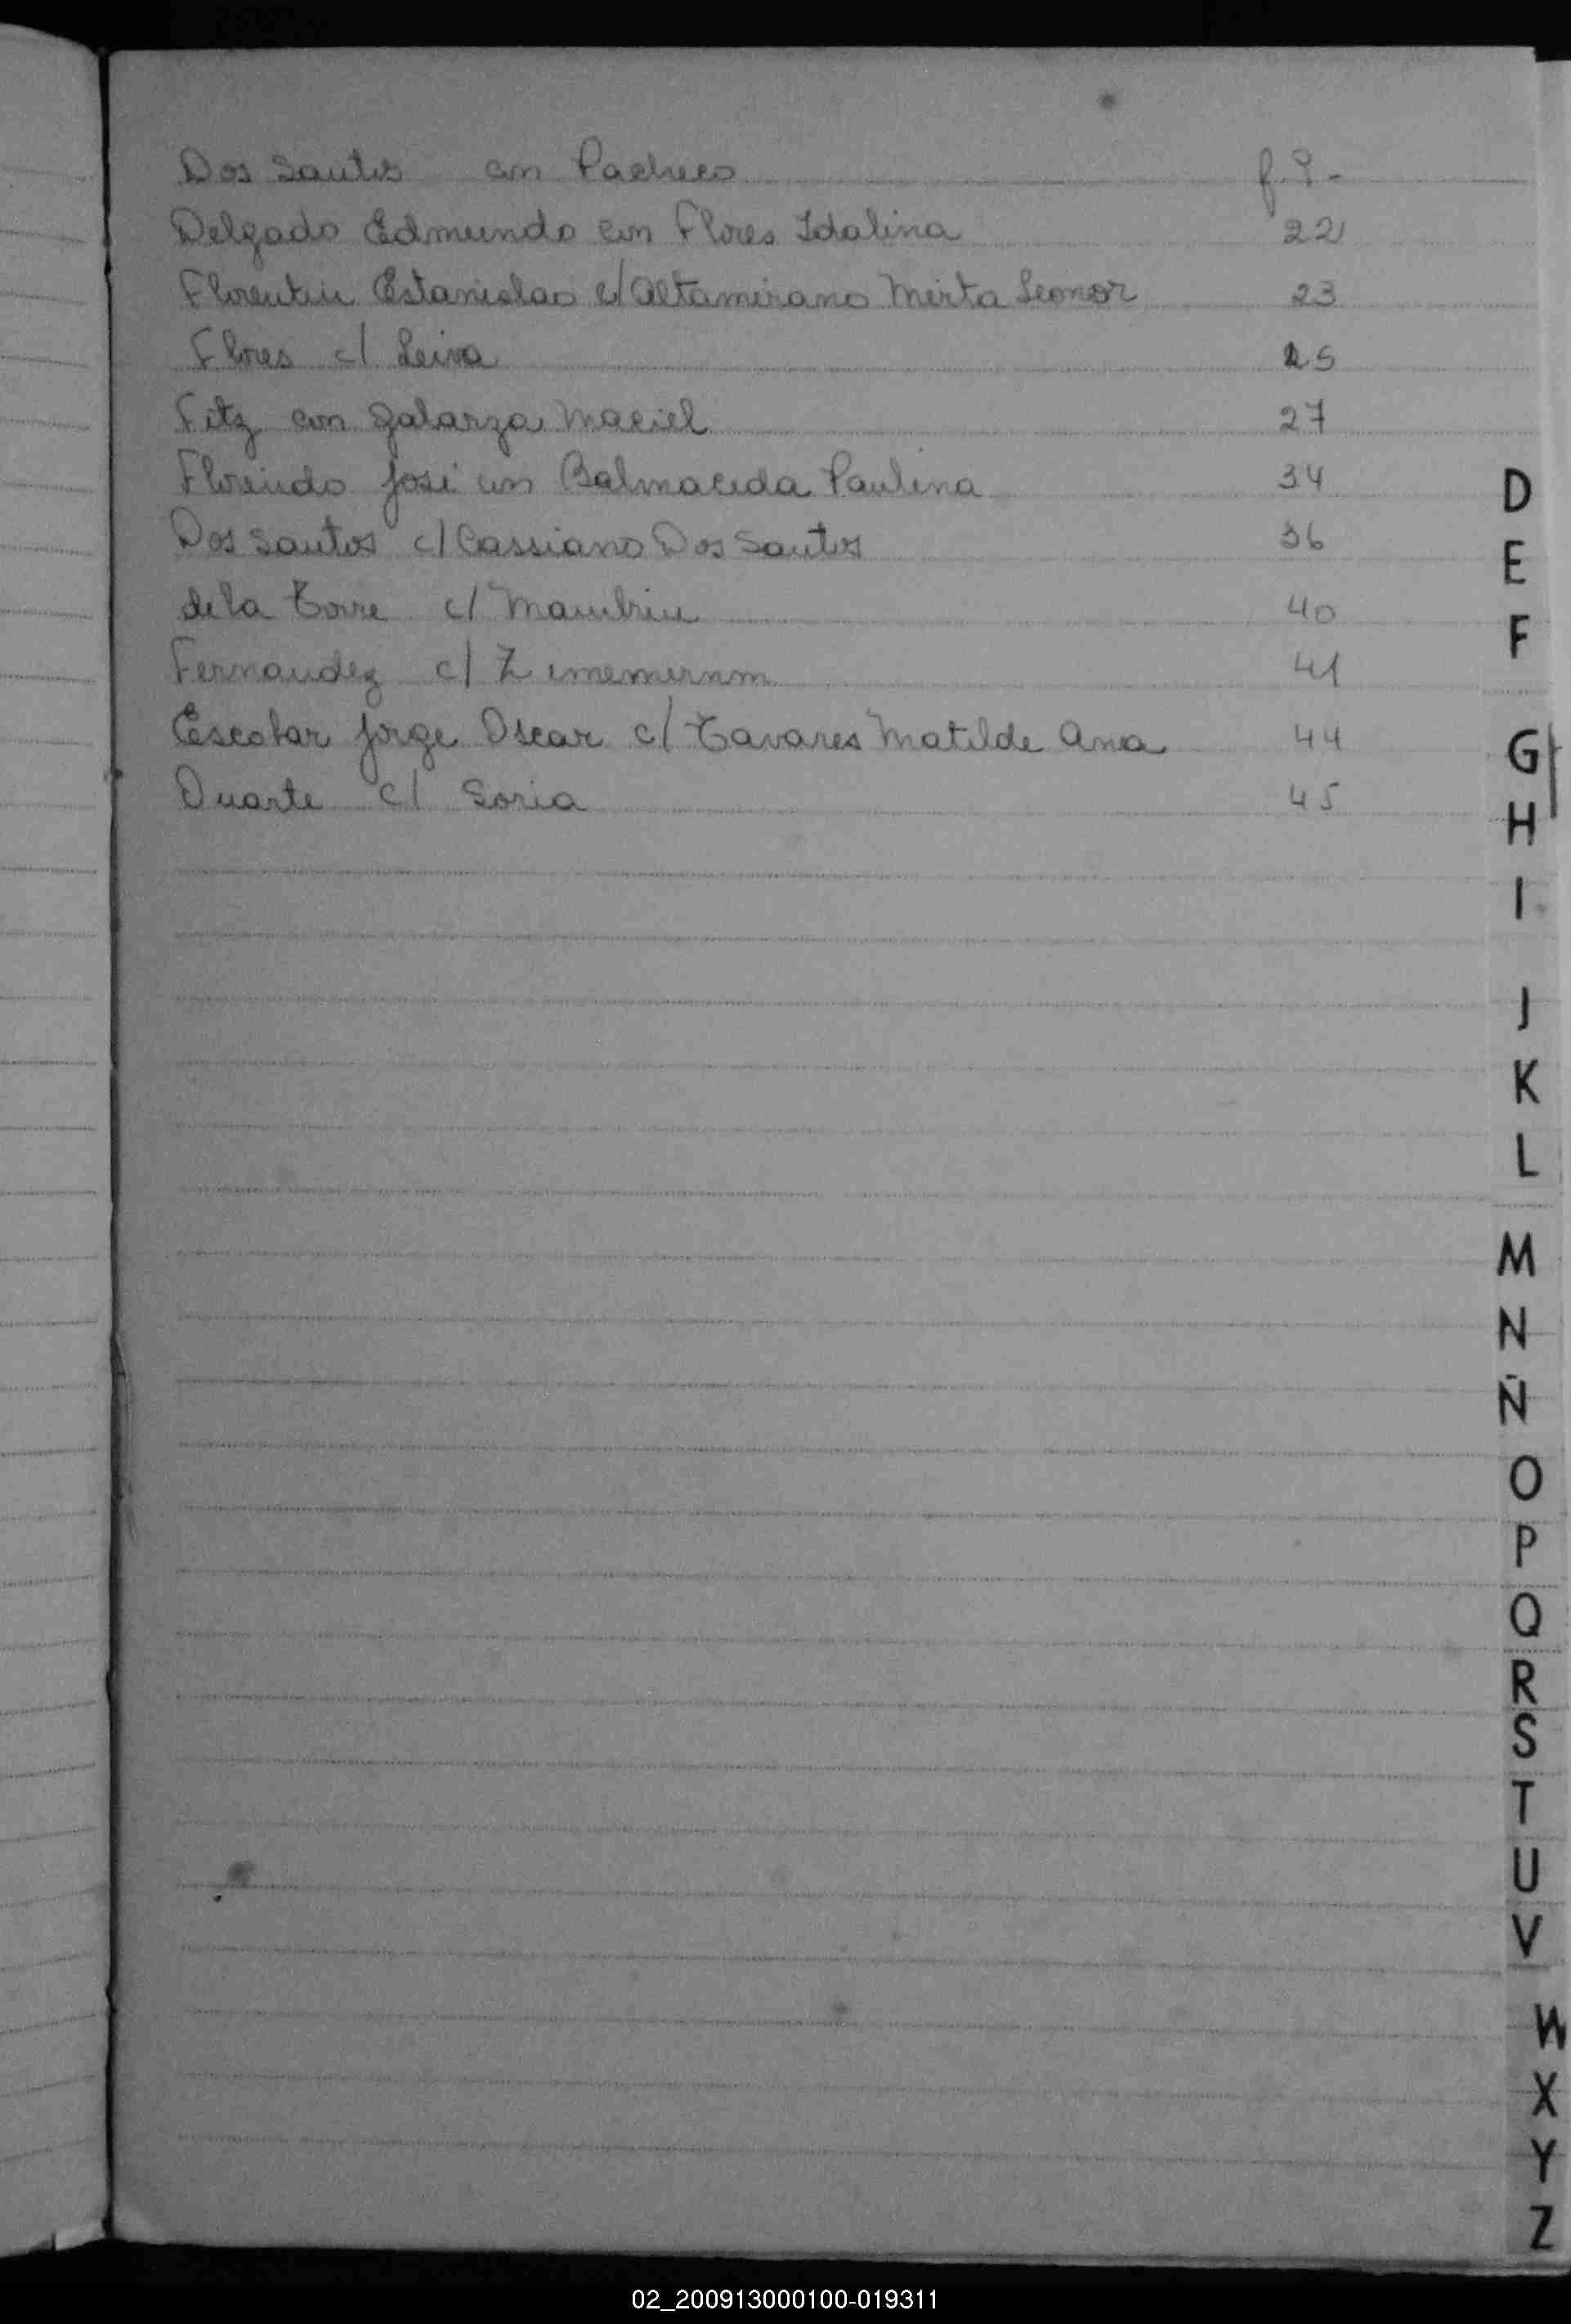 Dos Santos con Pacheco f. 9-
Delgado Edmundo con Flores Idalina 22
Florentin Estanislao c/ Altamirano Mirta Leonor 23
Flores c/ Leiva 25
Fitz con Galarza Maciel 27
Florindo José con Balmaceda Paulina 34
Dos Santos c/ Cassiano Dos Santos 36
de la Torre c/ Mambrin 40
Fernandez c/ 41
Escobar Jorge Oscar c/ Tavares Matilde Ana 44
Duarte c/ Soria 45
D
E
F
G
H
I
J
K
L
M
N
Ñ
O
P
Q
R
S
T
U
V
W
X
Y
Z
02_200913000100-019311